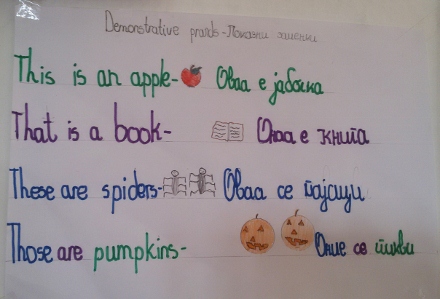 Demonstrative - Показни
This is an apple- Оваа е јаболка
That is a book- Онаа е книга
These are spiders- Оваа се пајаци
Those are pumpkins- Оние се тикви